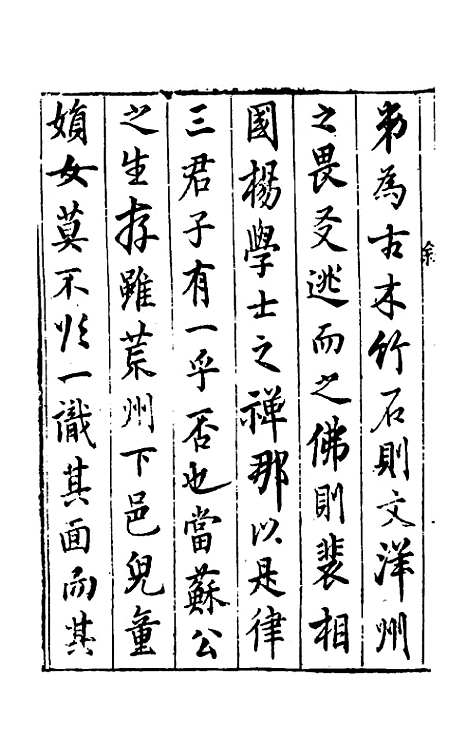 弟為古木竹石則文洋州
之畏友逃而之佛則裴相
國楊學士之禪那以是律
三君子有一乎否也當蘇公
之生存雖荒州下邑兒童
媍女莫不欣一識其面而其